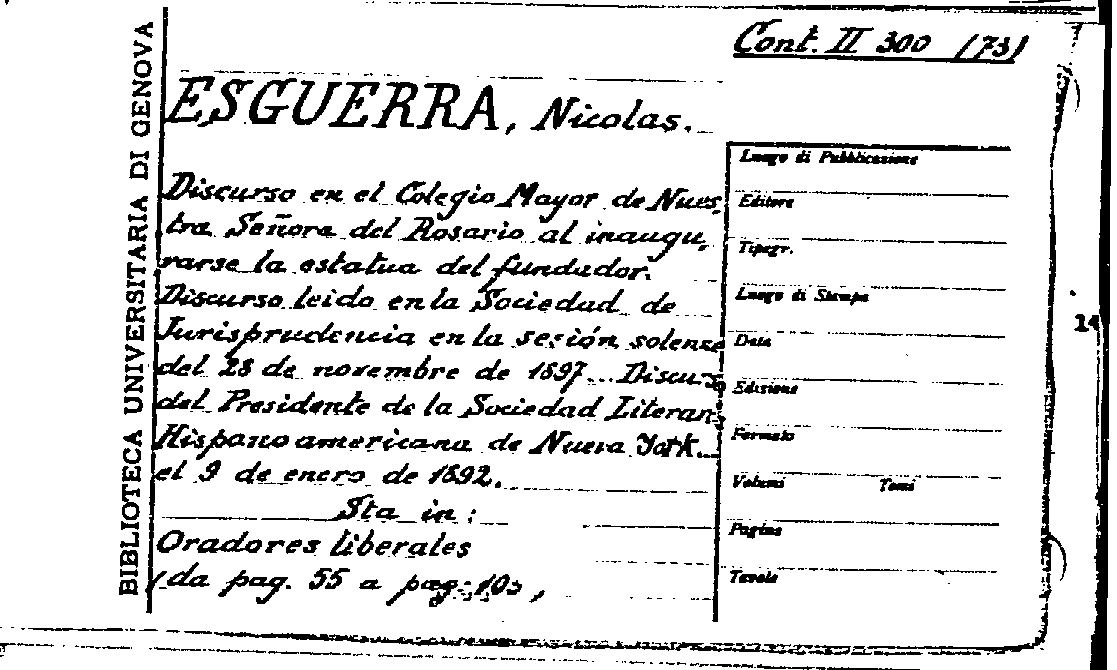 Cont. II 300 (73)
BIBLIOTECA UNIVERSITARIA DI GENOVA
ESGUERRA, Nicolas.
Discurso en el Colegio Mayor de Nues
tra Señora del Rosario al inaugu,
rarse la estatua del fundador.
Discurso leido en la Sociedad de
Jurisprudencia en la sesión solenne
del 28 de novembre de 1897... Discurso
del Presidente de la Sociedad Literaria
Hispano americana de Nueva York...
el 9 de enero de 1892.
Sta in:
Oradores liberales
(da pag. 55 a pag.
Luogo di Pubblicazione
Editore
Tipogr.
Luogo di Stampa
Data
Edizione
Formato
Volumi Tomi
Pagine
Tavole
14